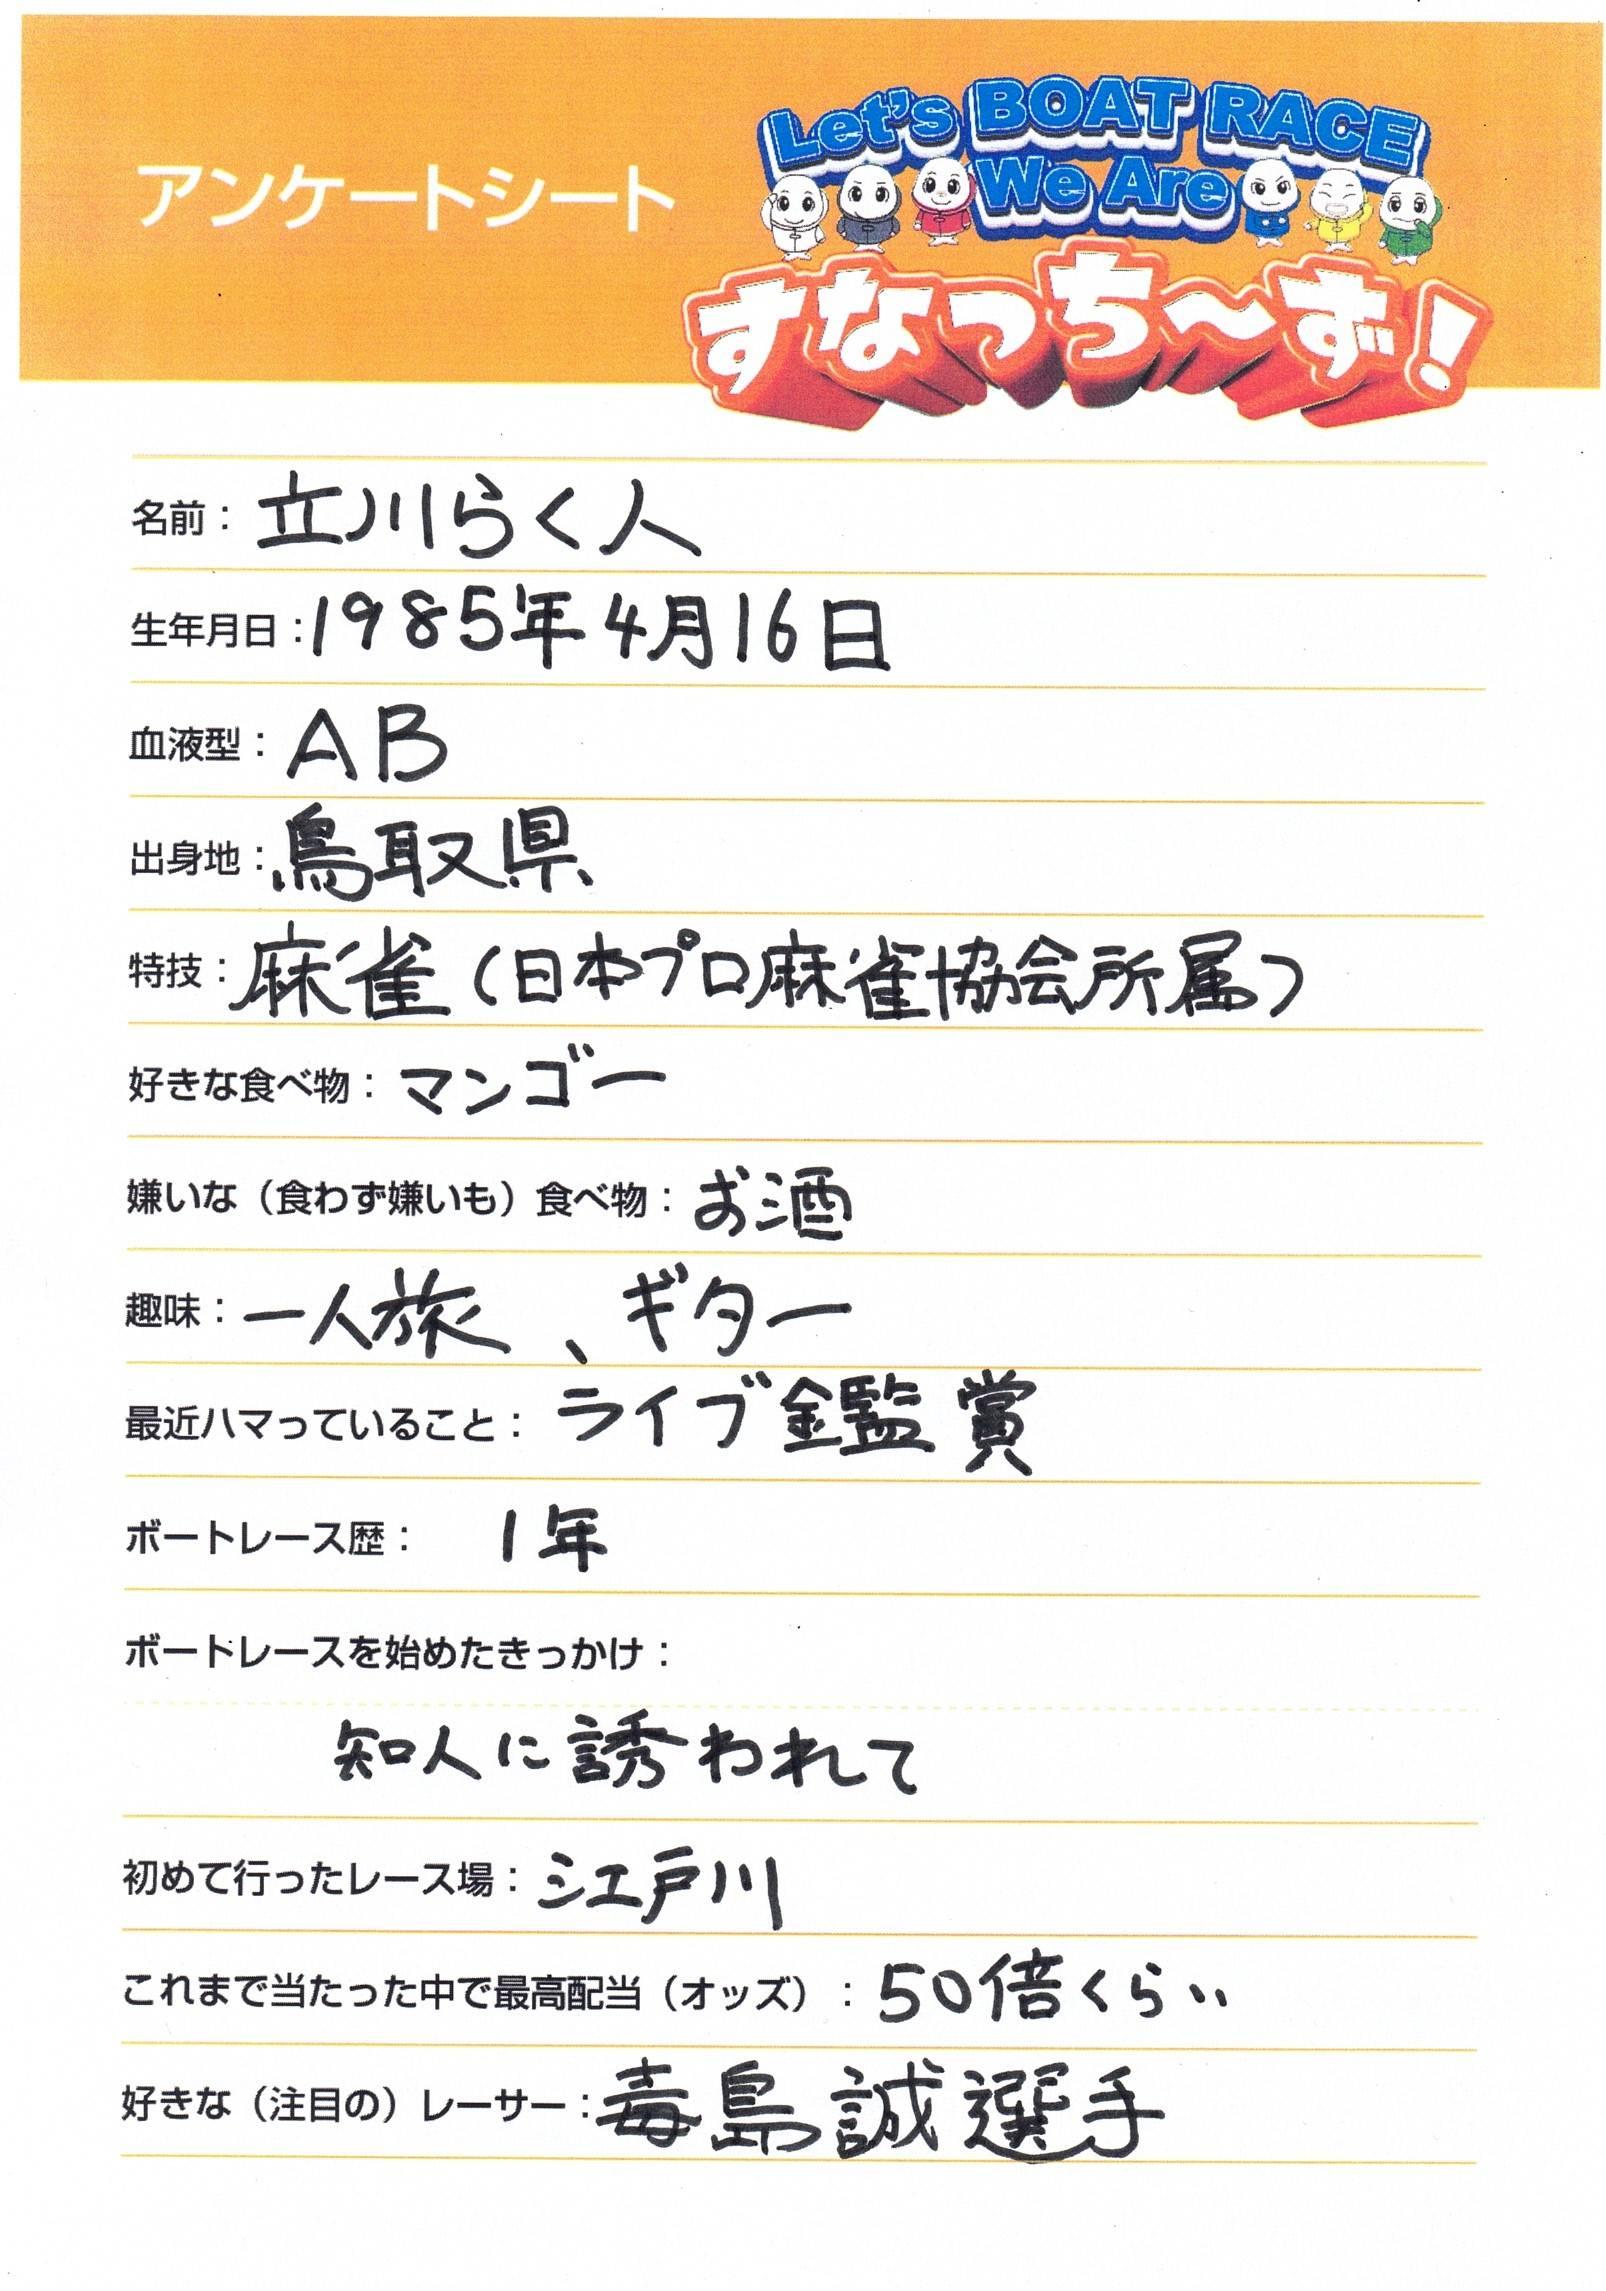 アンケートシート
Let's BOAT RACE
We Are
すなっち〜ず!
名前：立川らく人
生年月日：1985年4月16日
血液型：AB
出身地：鳥取県
特技：麻雀（日本プロ麻雀協会所属）
好きな食べ物：マンゴー
嫌いな（食わず嫌いも）食べ物：お酒
趣味：一人旅、ギター
最近ハマっていること：ライブ鑑賞
ボートレース歴：1年
ボートレースを始めたきっかけ：
知人に誘われて
初めて行ったレース場：江戸川
これまで当たった中で最高配当（オッズ）：50倍くらい
好きな（注目の）レーサー：毒島誠選手